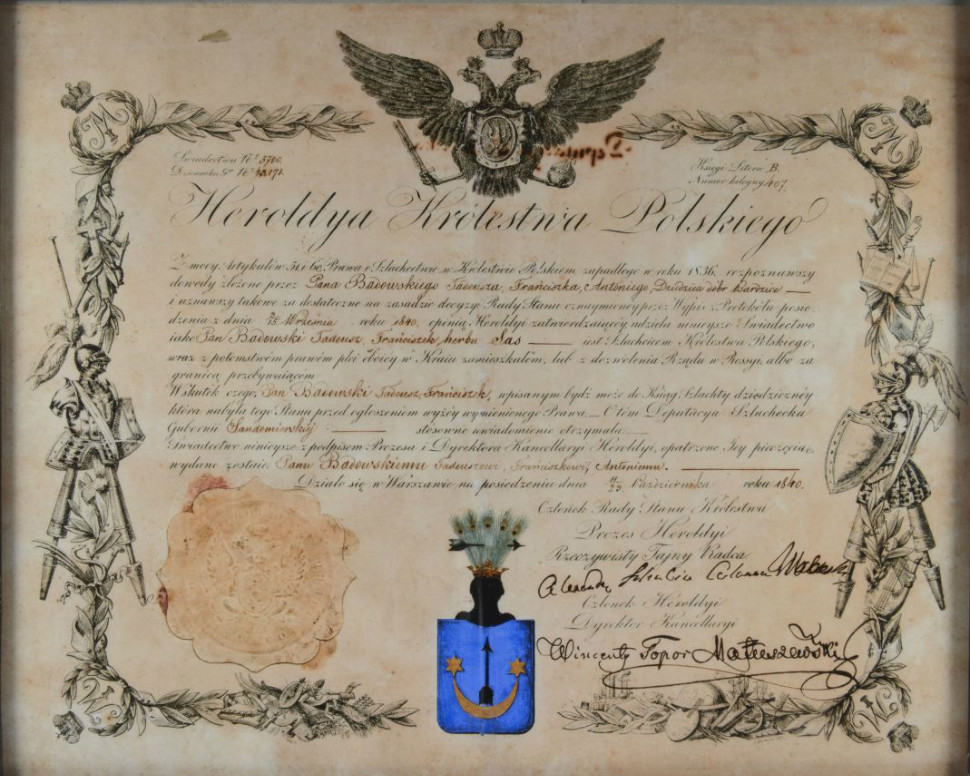 Świadectwa Nr 5700.
Dziennika Gł. Nr
Księgi Litera B.
Numer bieżący 407.
Heroldya Królestwa Polskiego
Z mocy Artykułów 51 i 60 Prawa o Szlachectwie w Królestwie Polskiem zapadłego w roku 1836, rozpoznawszy
dowody złożone przez Pana Badowskiego Tadeusza, Franciszka, Antoniego, Dziedzica dóbr Bardzice
i uznawszy takowe za dostateczne na zasadzie decyzyi Rady Stanu oznaymioney przez Wypis z Protokółu posie-
dzenia z dnia Września roku 1840, opinią Heroldyi zatwierdzaiącey udziela ninieysze Świadectwo
iako Pan Badowski Tadeusz, Franciszek herbu Sas iest Szlachcicem Królestwa Polskiego,
wraz z potomstwem prawem płci oboiey w Kraiu zamieszkałem, lub z dozwolenia Rządu w Rossyi, albo za
granicą przebywaiącem
Wskutek czego, Pan Badowski Tadeusz Franciszek, wpisanym bydź może do Księgi Szlachty dziedziczney
która nabyła tego Stanu przed ogłoszeniem wyżey wymienionego Prawa. O tem Deputacya Szlachecka
Gubernii Sandomierskiej stosowne uwiadomienie otrzymała
Świadectwo ninieysze z podpisem Prezesa i Dyrektora Kancellaryi Heroldyi, opatrzone Jey pieczęcią,
wydane zostaie Panu Badowskiemu Tadeuszowi, Franciszkowi, Antoniemu.
Działo się w Warszawie na posiedzeniu dnia 11/23 Października roku 1840.
Członek Rady Stanu Królestwa
Prezes Heroldyi
Rzeczywisty Tayny Radca
Członek Heroldyi
Dyrektor Kancellaryi
Wincenty Topór Matuszewski